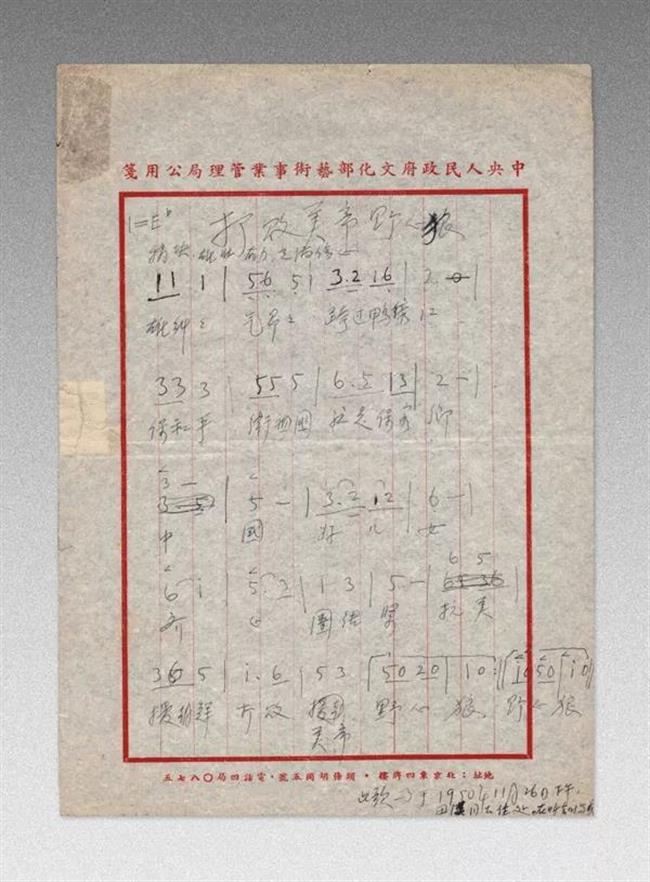 中央人民政府文化部藝術事業管理局公用箋
1=E♭ 打敗美帝野心狼
稍快 雄壯 有力 充滿信心
11 1 | 56 5 | 3.2 16 | 2 - |
雄糾々 氣昂々 跨过鸭绿江
33 3 | 55 5 | 6.5 13 | 2 - |
保和平 衛祖國 就是保家鄉
3 -
| 5 - | 3.2 12 | 6 - |
中 國 好 儿 女
6 5
6 i | 5.2 | 1 3 | 5 - |
齐 心 團结 緊 抗美
36 5 | i.6 | 53 | 50 20 | 10 :|| 10 50 | i0 ||
援朝鮮 打敗 美帝 野心 狼 野心狼
地址：北京東四牌樓·頭條胡同五號·電話四局〇八七五
此歌写于1950年11月26日下午.
田漢同志住处